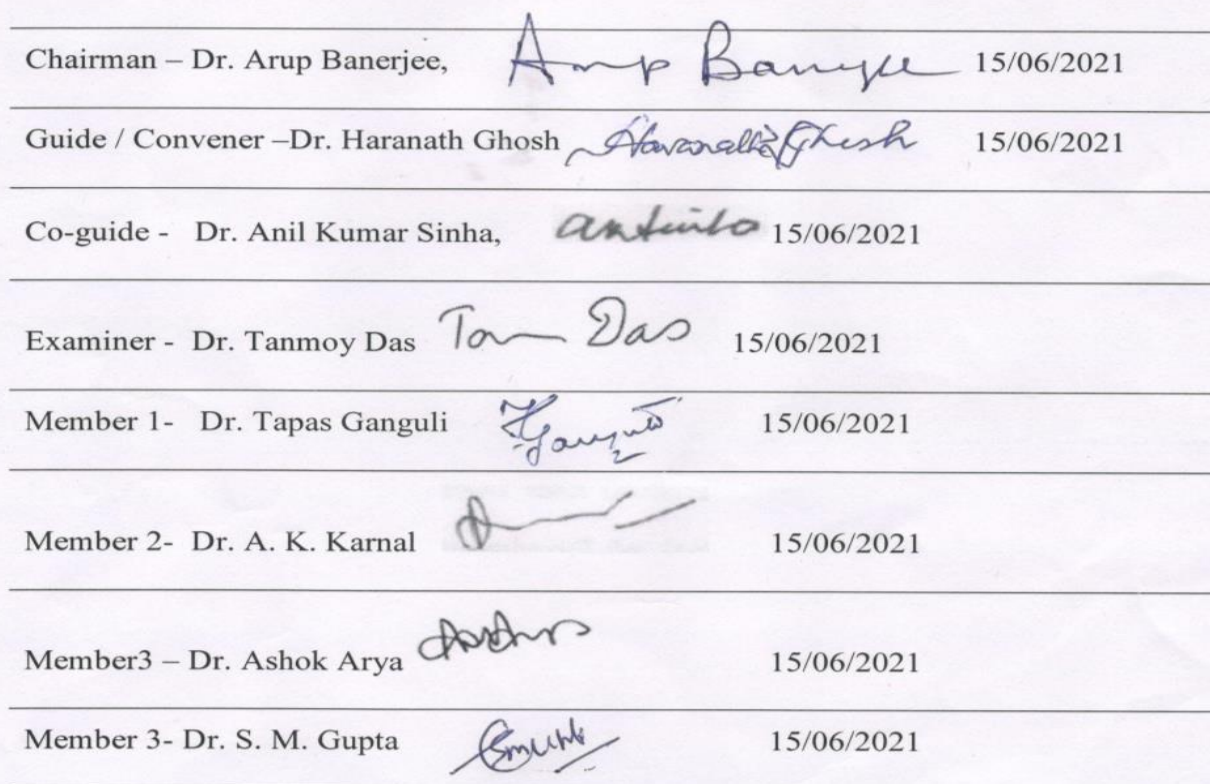 Chairman – Dr. Arup Banerjee, Arup Banerjee 15/06/2021
Guide / Convener –Dr. Haranath Ghosh Haranath Ghosh 15/06/2021
Co-guide - Dr. Anil Kumar Sinha, 15/06/2021
Examiner - Dr. Tanmoy Das Das 15/06/2021
Member 1- Dr. Tapas Ganguli 15/06/2021
Member 2- Dr. A. K. Karnal 15/06/2021
Member3 – Dr. Ashok Arya 15/06/2021
Member 3- Dr. S. M. Gupta 15/06/2021